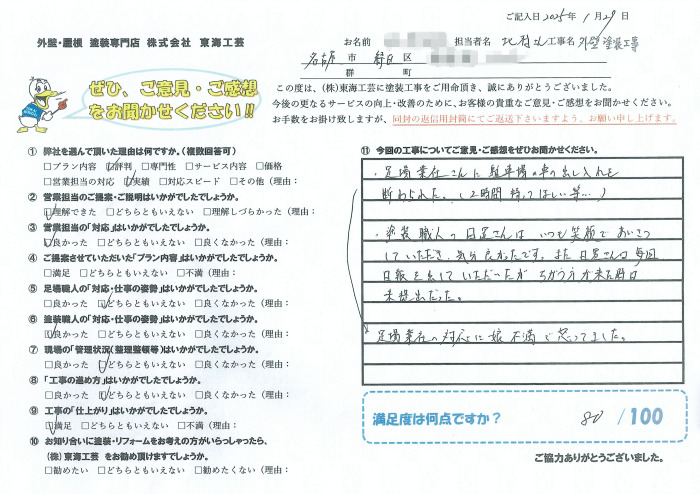 ご記入日 2025年 1月29日
外壁・屋根 塗装専門店 株式会社 東海工芸
お名前 担当者名 工事名 外壁塗装工事
名古屋市 緑区
郡 町
ぜひ、ご意見・ご感想
をお聞かせください!!
この度は、(株)東海工芸に塗装工事をご用命頂き、誠にありがとうございました。
今後の更なるサービスの向上・改善のために、お客様の貴重なご意見・ご感想をお聞かせください。
お手数をお掛け致しますが、同封の返信用封筒にてご返送下さいますよう、お願い申し上げます。
① 弊社を選んで頂いた理由は何ですか。(複数回答可)
□プラン内容 □評判 □専門性 □サービス内容 □価格
□営業担当の対応 □実績 □対応スピード □その他(理由:
② 営業担当のご提案・ご説明はいかがでしたでしょうか。
□理解できた □どちらともいえない □理解しづらかった(理由:
③ 営業担当の「対応」はいかがでしたでしょうか。
□良かった □どちらともいえない □良くなかった(理由:
④ ご提案させていただいた「プラン内容」はいかがでしたでしょうか。
□満足 □どちらともいえない □不満(理由:
⑤ 足場職人の「対応・仕事の姿勢」はいかがでしたでしょうか。
□良かった □どちらともいえない □良くなかった(理由:
⑥ 塗装職人の「対応・仕事の姿勢」はいかがでしたでしょうか。
□良かった □どちらともいえない □良くなかった(理由:
⑦ 現場の「管理状況(整理整頓等)はいかがでしたでしょうか。
□良かった □どちらともいえない □良くなかった(理由:
⑧ 「工事の進め方」はいかがでしたでしょうか。
□良かった □どちらともいえない □良くなかった(理由:
⑨ 工事の「仕上がり」はいかがでしたでしょうか。
□満足 □どちらともいえない □不満(理由:
⑩ お知り合いに塗装・リフォームをお考えの方がいらっしゃったら、
(株)東海工芸 をお勧め頂けますでしょうか。
□勧めたい □どちらともいえない □勧めたくない(理由:
⑪ 今回の工事についてご意見・ご感想をぜひお聞かせください。
・足場業社さんに駐車場の車の出し入れを
断わられた。(2時間待ってほしい等…)
・塗装職人の日疋さんはいつも笑顔であいさつ
していただき、気分良かったです。また日疋さんは毎回
日報を出していただいたが ちがう方が来た時日
未提出だった。
足場業社の対応に娘不満で怒ってました。
満足度は何点ですか? 80 /100
ご協力ありがとうございました。